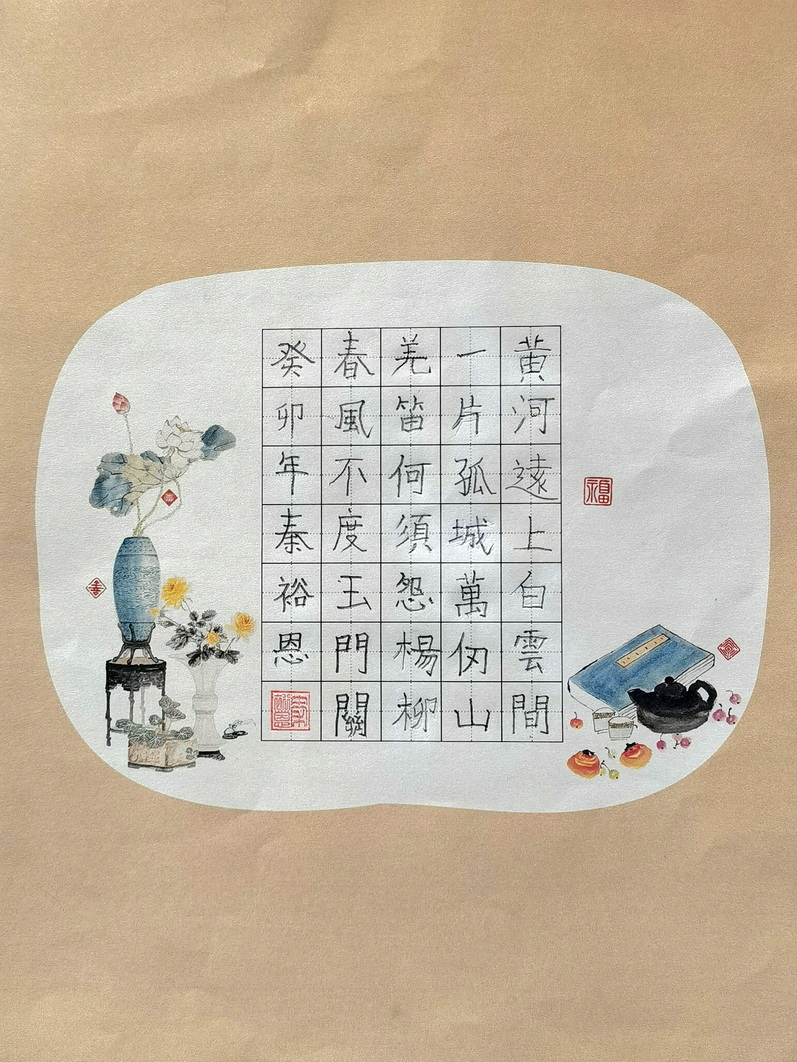 福
黃河遠上白雲間
一片孤城萬仞山
羌笛何須怨楊柳
春風不度玉門關
癸卯年秦裕恩